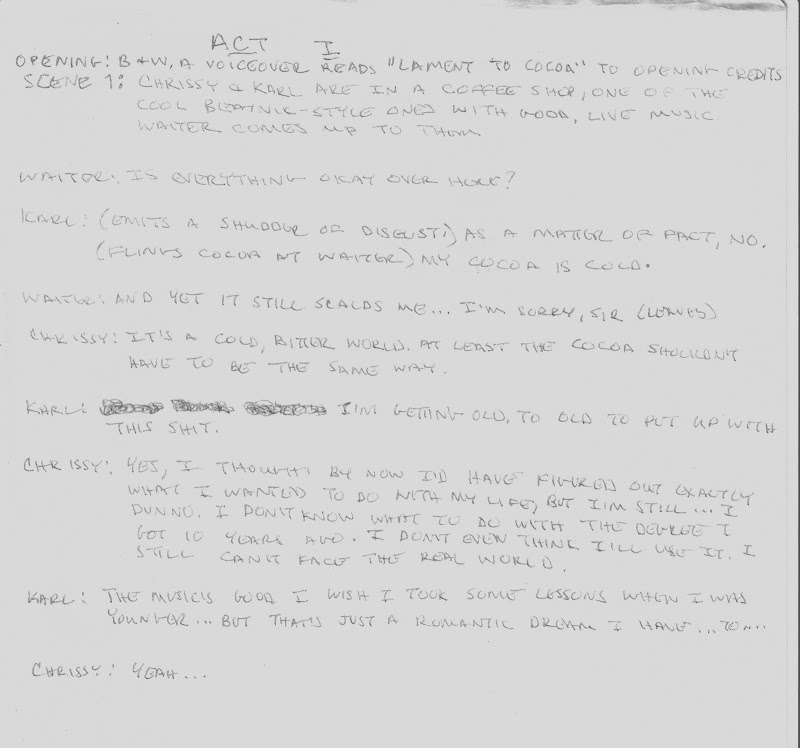 ACT I
OPENING: B+W, A VOICEOVER READS "LAMENT TO COCOA" TO OPENING CREDITS
SCENE 1: CHRISSY & KARL ARE IN A COFFEE SHOP, ONE OF THE
COOL BEATNIK-STYLE ONES WITH GOOD, LIVE MUSIC.
WAITER COMES UP TO THEM
WAITER: IS EVERYTHING OKAY OVER HERE?
KARL: (EMITS A SHUDDER OF DISGUST) AS A MATTER OF FACT, NO.
(FLINGS COCOA AT WAITER) MY COCOA IS COLD.
WAITER: AND YET IT STILL SCALDS ME... I'M SORRY, SIR (LEAVES)
CHRISSY: IT'S A COLD, BITTER WORLD. AT LEAST THE COCOA SHOULDN'T
HAVE TO BE THE SAME WAY.
KARL: I'M GETTING OLD, TO OLD TO PUT UP WITH
THIS SHIT.
CHRISSY: YES, I THOUGHT BY NOW I'D HAVE FIGURED OUT EXACTLY
WHAT I WANTED TO DO WITH MY LIFE, BUT I'M STILL... I
DUNNO. I DON'T KNOW WHAT TO DO WITH THE DEGREE I
GOT 10 YEARS AGO. I DON'T EVEN THINK I'LL USE IT. I
STILL CAN'T FACE THE REAL WORLD.
KARL: THE MUSIC IS GOOD I WISH I TOOK SOME LESSONS WHEN I WAS
YOUNGER... BUT THAT'S JUST A ROMANTIC DREAM I HAVE... TO....
CHRISSY: YEAH...